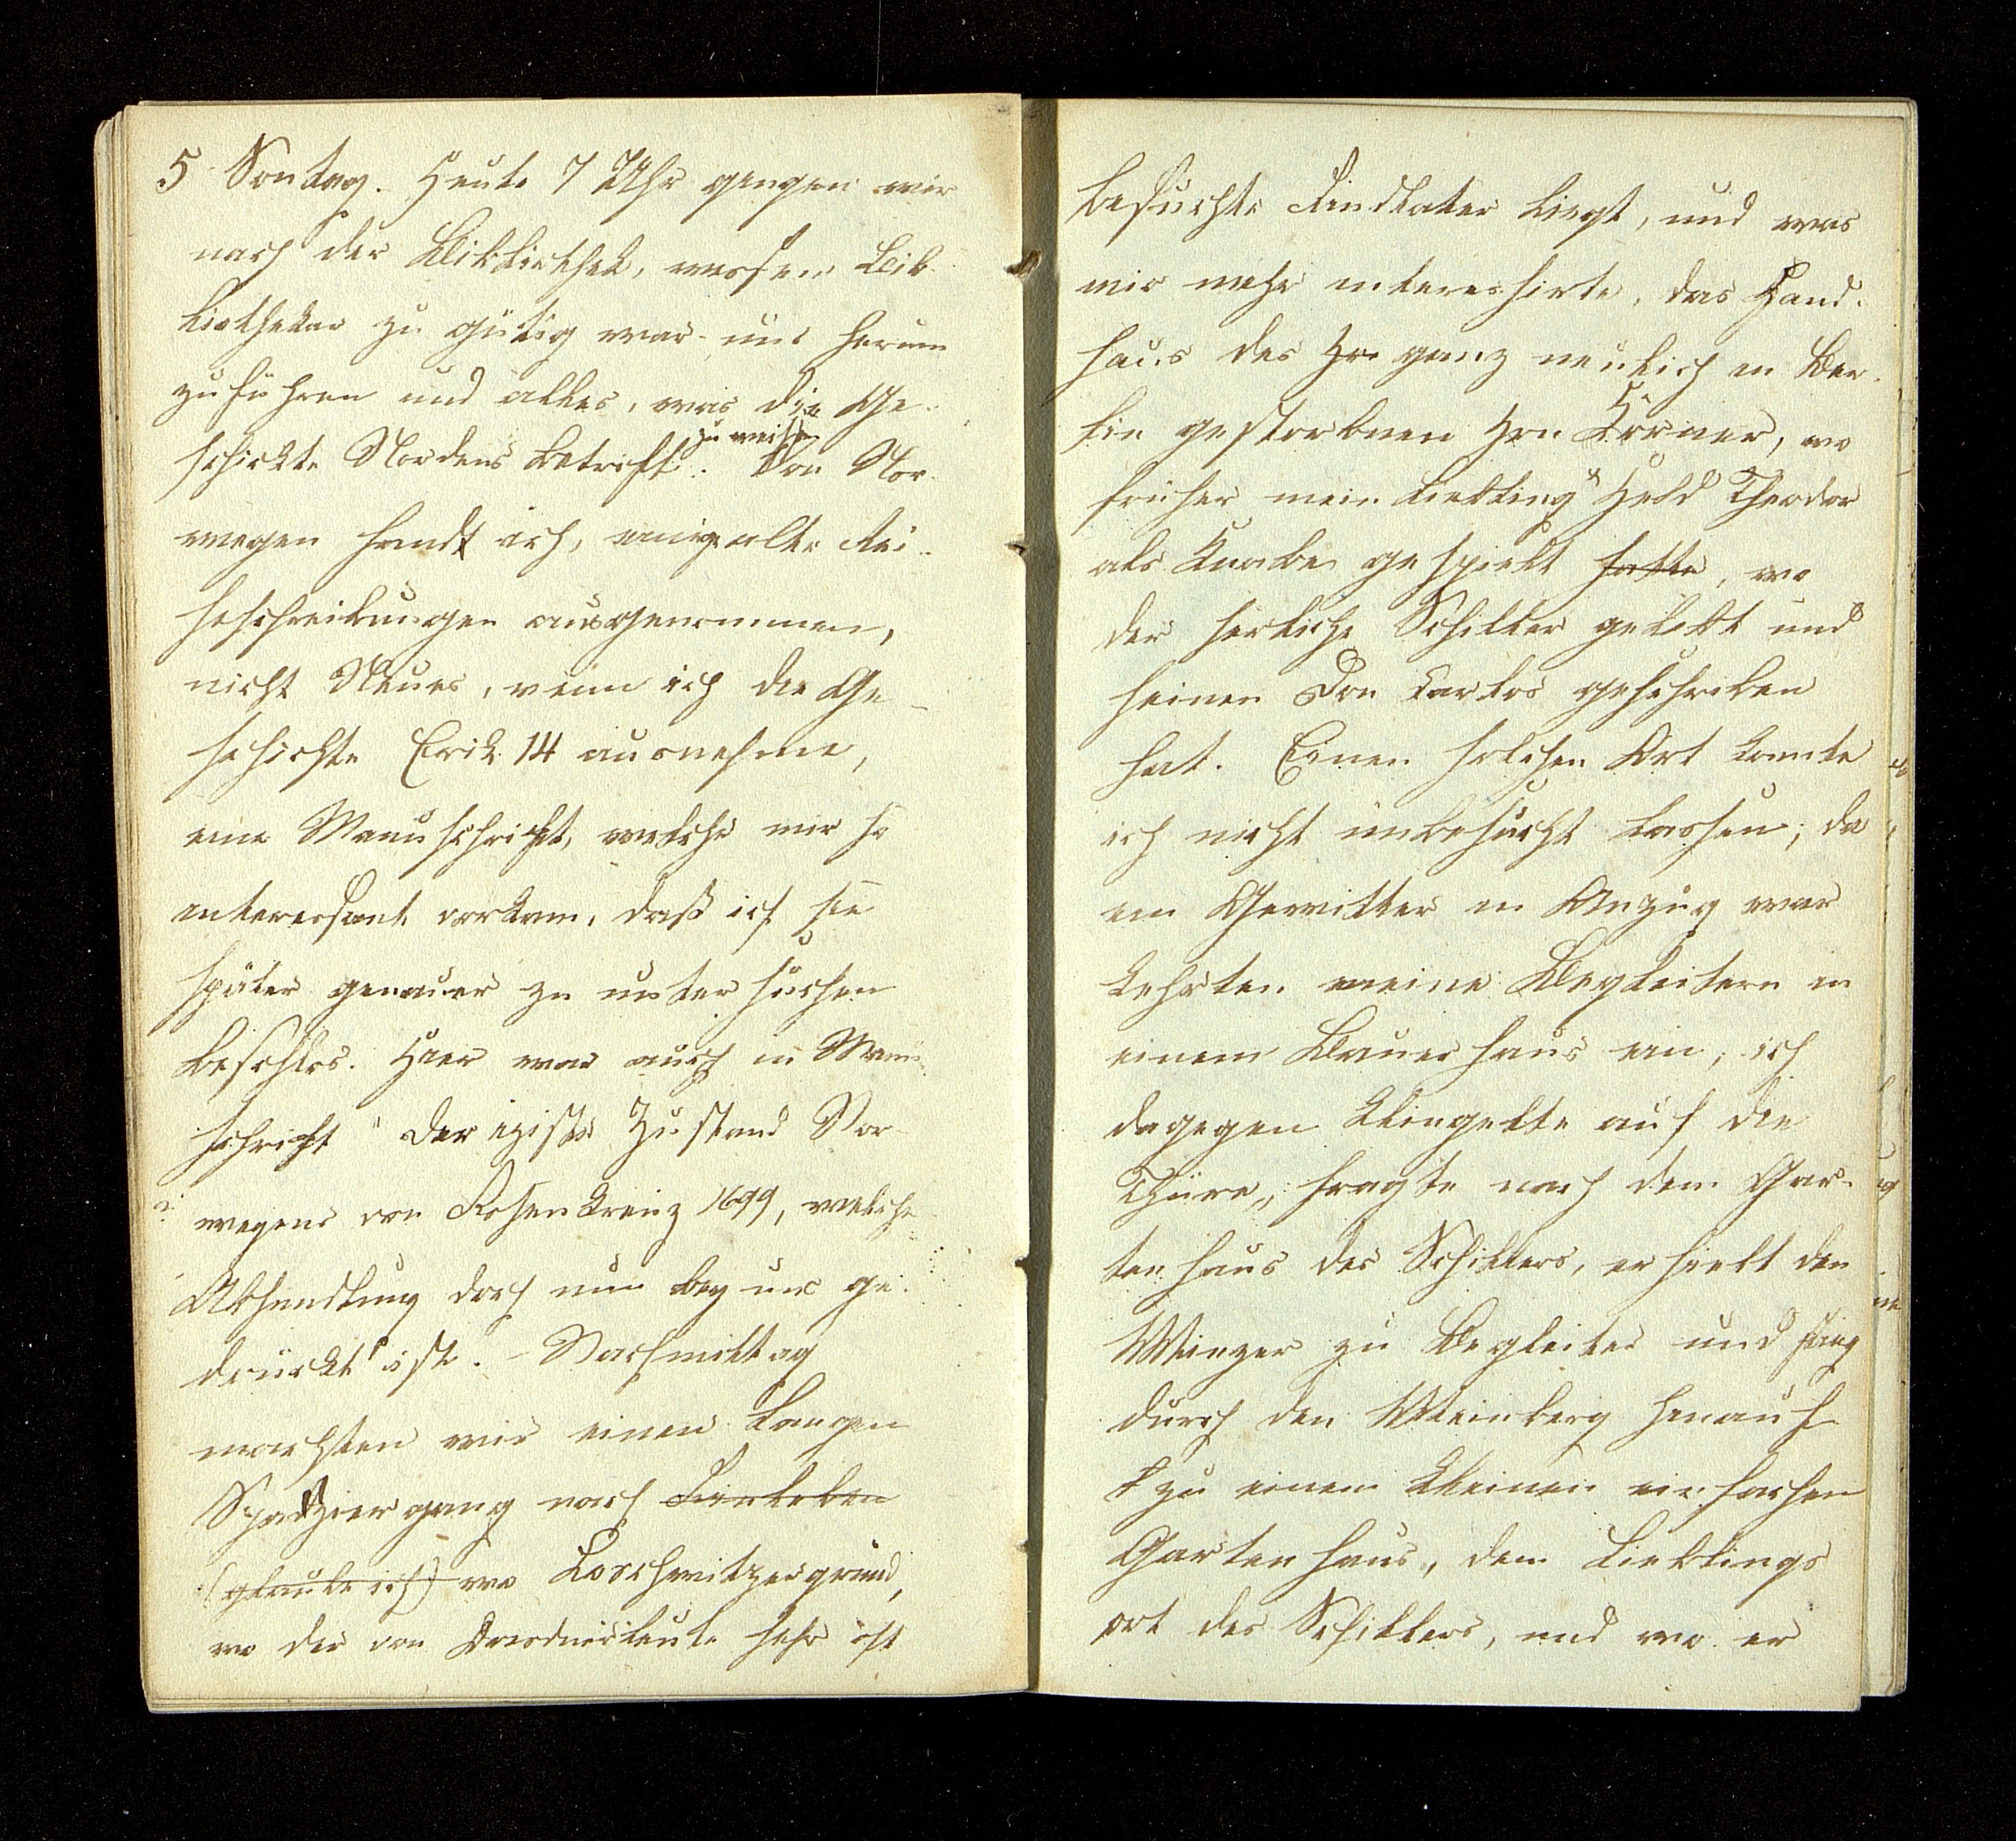 5 Sontag. Heute 7 Uhr gengen wir
nach der Bibliothek, wessen Bib-
liothekar zu gütig war uns herum
zuführen und alles, was die Ge-
schickte Nordens betrifft zu weisen. Von Nor-
wegen fandt ich, einige alte Rei-
sebeschreibungen ausgenommen,
nicht Neues, wenn ich die Ge-
schichte Erik 14 ausnehme,
eine Manuschrift, welche mir so
interessant vorkam, daß ich sie
später genauer zu untersuchen
beschlos. Hier war auch in Manu-
schrift "Der izisste Zustand Nor-
wegens von Rosenkreuz 1699, welche
Abhandlung doch nun bey uns ge-
druckt" ist. – Nachmittag
machten wir einen langen
Spadziergang nach
(glaube ich) wo Loschwitzergrund,
wo der von Dresdnerleute sehr oft
besuchte Findlater liegt, und was
mir mehr interessirte, das Hand-
haus des Hr ganz neulich in Ber-
lin gestorbnen Hrn Körner, wo
früher mein Liebling's Held Theodor
als Knabe gespielt hatte, wo
der herliche Schiller gelebt und
seinen Don Carlos geschrieben
hat. Einen solchen Ort konnte
ich nicht unbesucht lassen; da
ein Gewitter in Anzug war
kehrten meine Begleitern in
einem Bauerhaus ein, ich
dagegen klingelte auf die
Thüre, fragte nach dem Gar-
tenhaus des Schillers, erhielt den
Winzer zu Begleiter und stieg
durch den Weinberg henauf
zu einem kleinen einfachen
Gartenhaus, dem Lieblings
ort des Schillers, und wo er